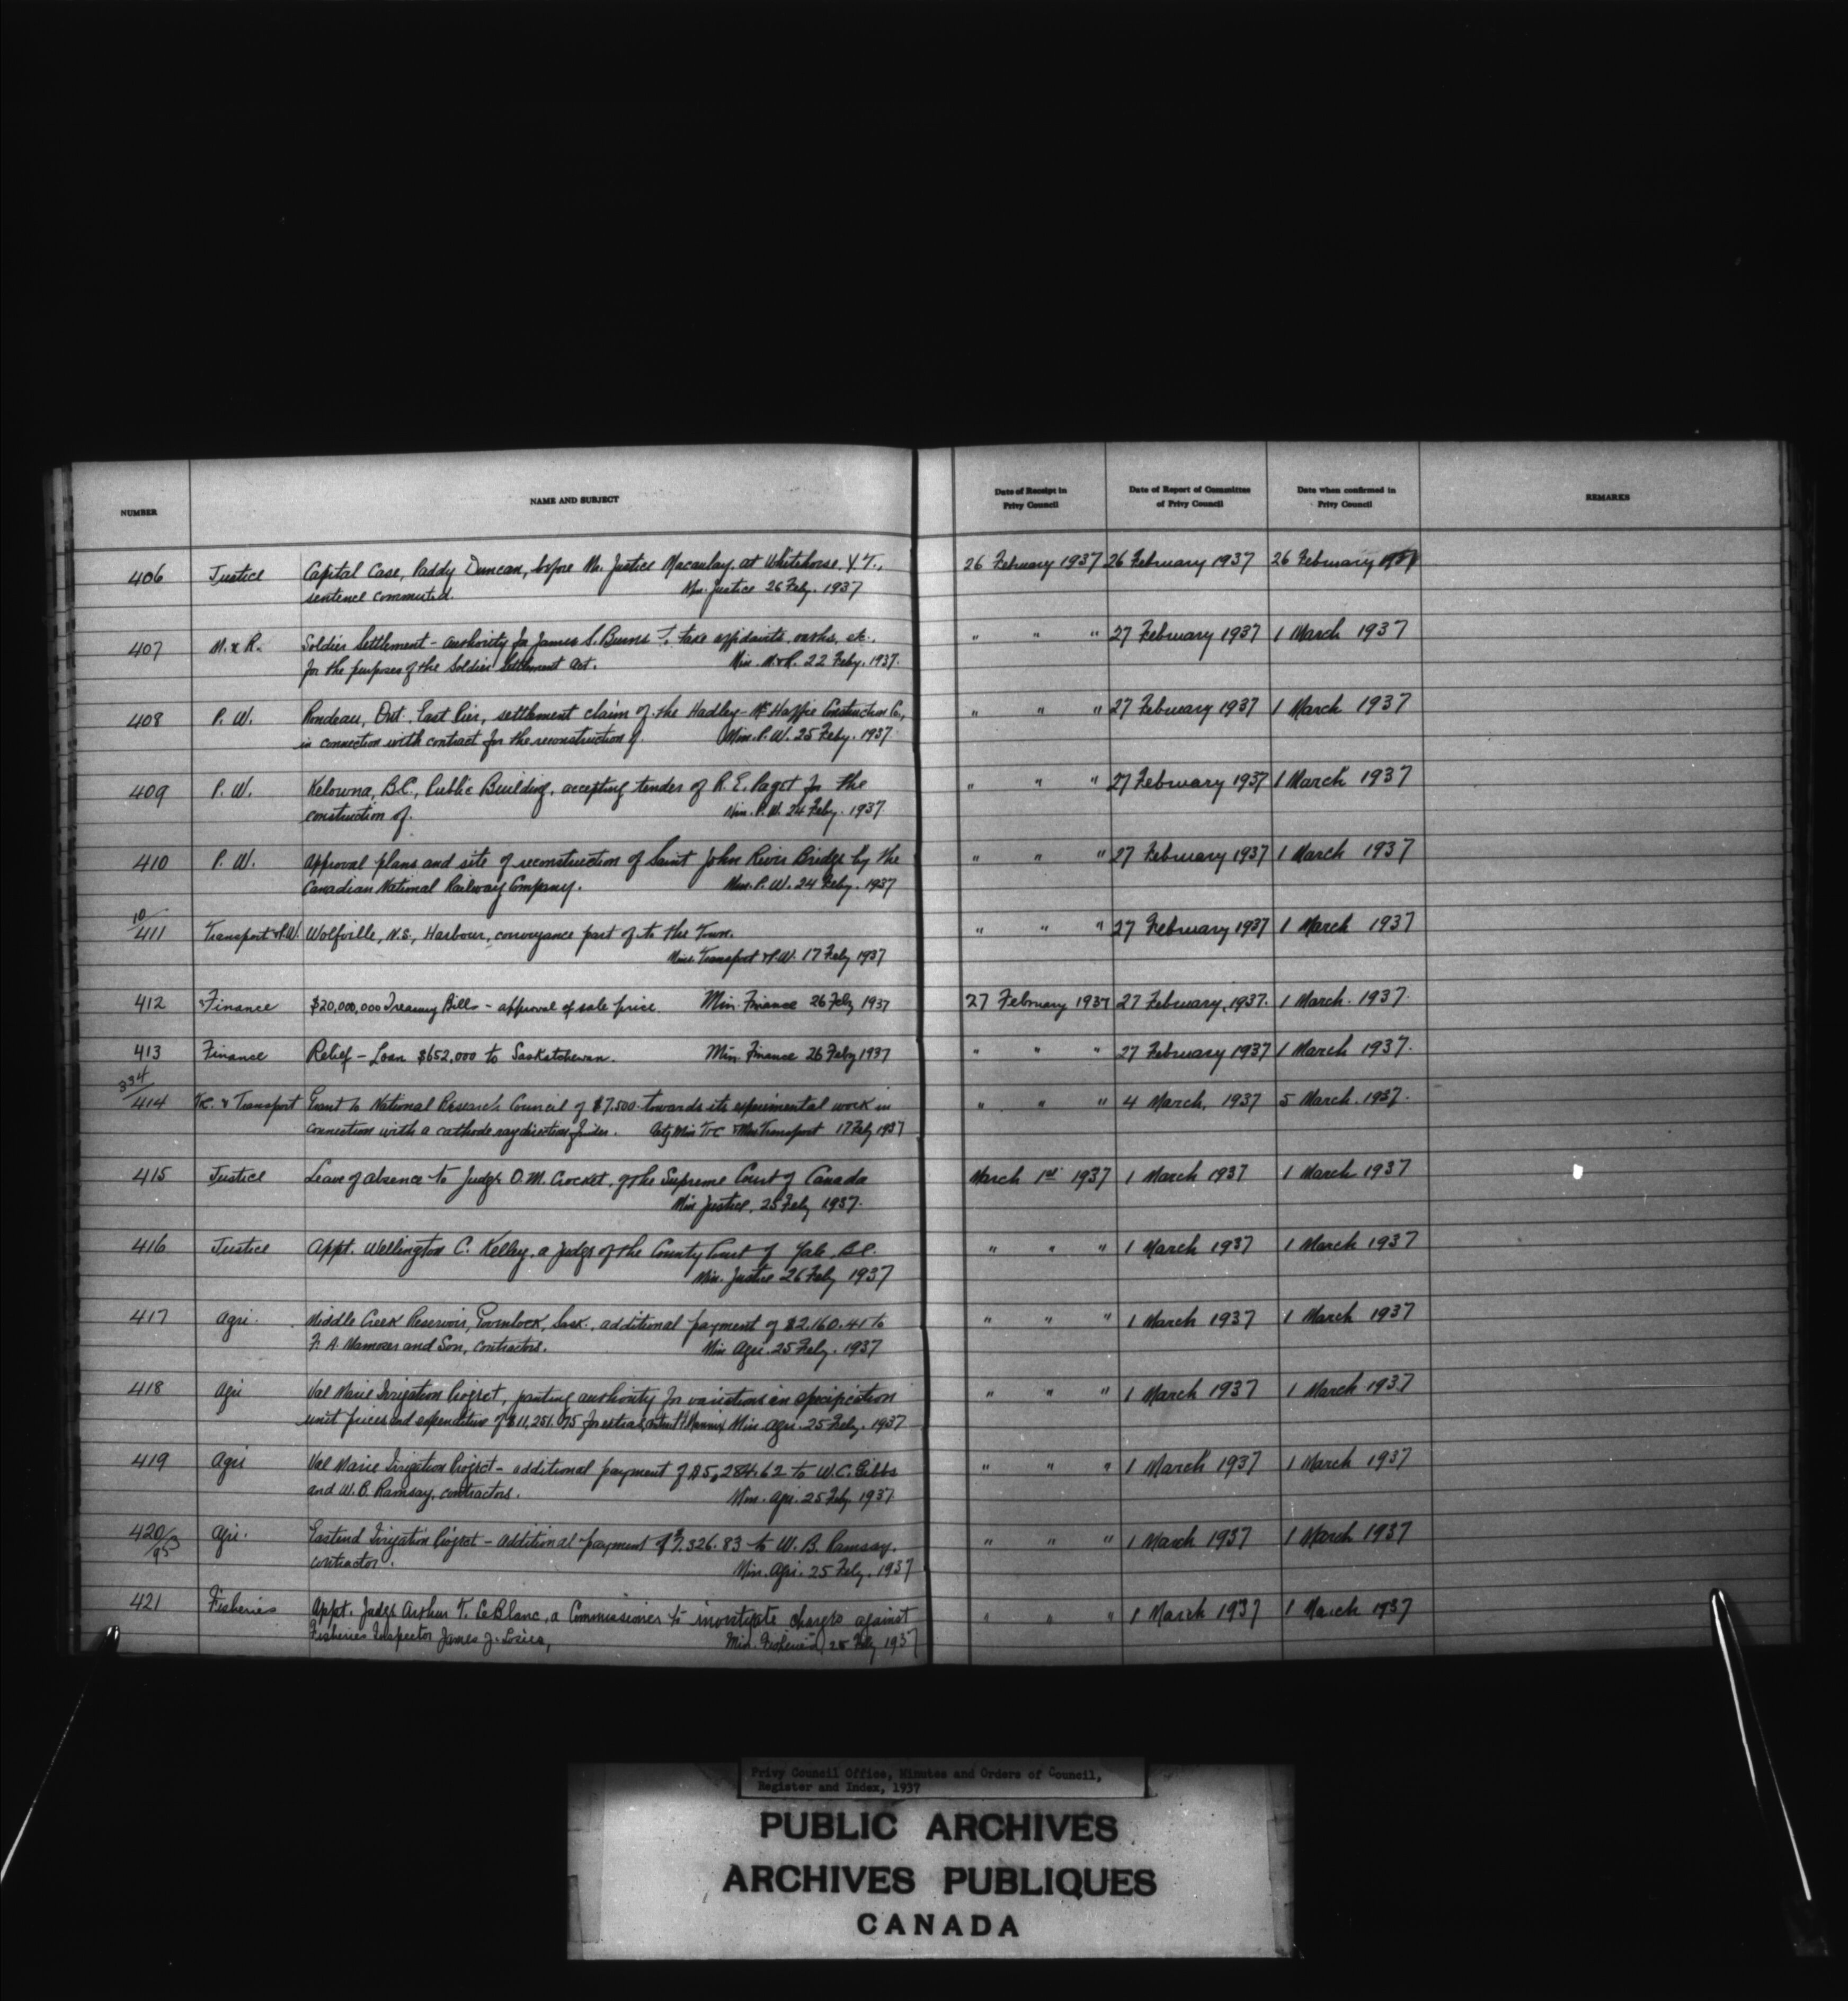 NUMBER
NAME AND SUBJECT
Date of Receipt in
Privy Council
Date of Report of Committee
of Privy Council
Date when confirmed in
Privy Council
REMARKS
406 Justice Capital Case, Paddy Duncan, before Mr. Justice Macaulay, at Whitehorse, Y.T., 26 February 1937 26 February 1937 26 February 1937
sentence commuted. Min. Justice 26 Feby. 1937
407 M. & R. Soldier Settlement - authority for James S. Burns to take affidavits, oaths, etc., " " " 27 February 1937 1 March 1937
for the purposes of the Soldier Settlement Act. Min. M. & R. 22 Feby. 1937.
408 P. W. Rondeau, Ont. East Pier, settlement claim of the Hadley-McHaffie Construction Co., " " " 27 February 1937 1 March 1937
in connection with contract for the reconstruction of. Min. P. W. 25 Feby. 1937
409 P. W. Kelowna, B.C., Public Building, accepting tender of R. E. Paget for the " " " 27 February 1937 1 March 1937
construction of. Min. P. W. 24 Feby. 1937
410 P. W. Approval plans and site of reconstruction of Saint John River Bridge by the " " " 27 February 1937 1 March 1937
Canadian National Railway Company. Min. P. W. 24 Feby. 1937
10/411 Transport & P.W. Wolfville, N.S., Harbour, conveyance part of to the Town. " " " 27 February 1937 1 March 1937
Min. Transport & P.W. 17 Feby 1937
412 Finance $20,000,000 Treasury Bills - approval of sale price. Min. Finance 26 Feby 1937 27 February 1937 27 February, 1937. 1 March. 1937.
413 Finance Relief - Loan $652,000 to Saskatchewan. Min. Finance 26 Feby 1937 " " " 27 February 1937 1 March 1937.
334/414 T.C. & Transport Grant to National Research Council of $7,500 towards its experimental work in " " " 4 March, 1937 5 March. 1937.
connection with a cathode ray direction finder. Actg Min T & C & Min Transport 17 Feby 1937
415 Justice Leave of absence to Judge O. M. Crocket, of the Supreme Court of Canada March 1st 1937 1 March 1937 1 March 1937
Min Justice, 25 Feby 1937.
416 Justice Appt. Wellington C. Kelley, a Judge of the County Court of Yale, B.C. " " " 1 March 1937 1 March 1937
Min. Justice 26 Feby 1937
417 Agri. Middle Creek Reservoir, Govenlock, Sask., additional payment of $2,160.41 to " " " 1 March 1937 1 March 1937
F. A. and Son, contractors. Min Agri. 25 Feby. 1937
418 Agri Val Marie Irrigation Project, granting authority for variations in specification " " " 1 March 1937 1 March 1937
unit prices and expenditure of $11,251.075 for extras, Min. Agri. 25 Feby. 1937
419 Agri Val Marie Irrigation Project - additional payment of $5,284.62 to W. C. Gibbs " " " 1 March 1937 1 March 1937
and W. B. Ramsay, contractors. Min. Agri. 25 Feby 1937
420/953 Agri. Eastend Irrigation Project - additional payment of $7,326.83 to W. B. Ramsay, " " " 1 March 1937 1 March 1937
contractor. Min. Agri. 25 Feby. 1937
421 Fisheries Appt. Judge Arthur T. LeBlanc, a Commissioner to investigate charges against " " " 1 March 1937 1 March 1937
Fisheries Inspector James J. Min. Fisheries, 25 Feby 1937
Privy Council Office, Minutes and Orders of Council,
Register and Index, 1937
PUBLIC ARCHIVES
ARCHIVES PUBLIQUES
CANADA